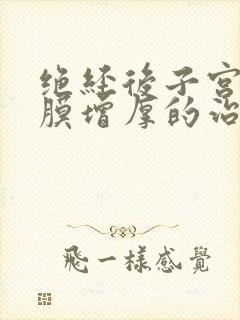 绝经後子宫
膜增厚的治
飛一樣感覺